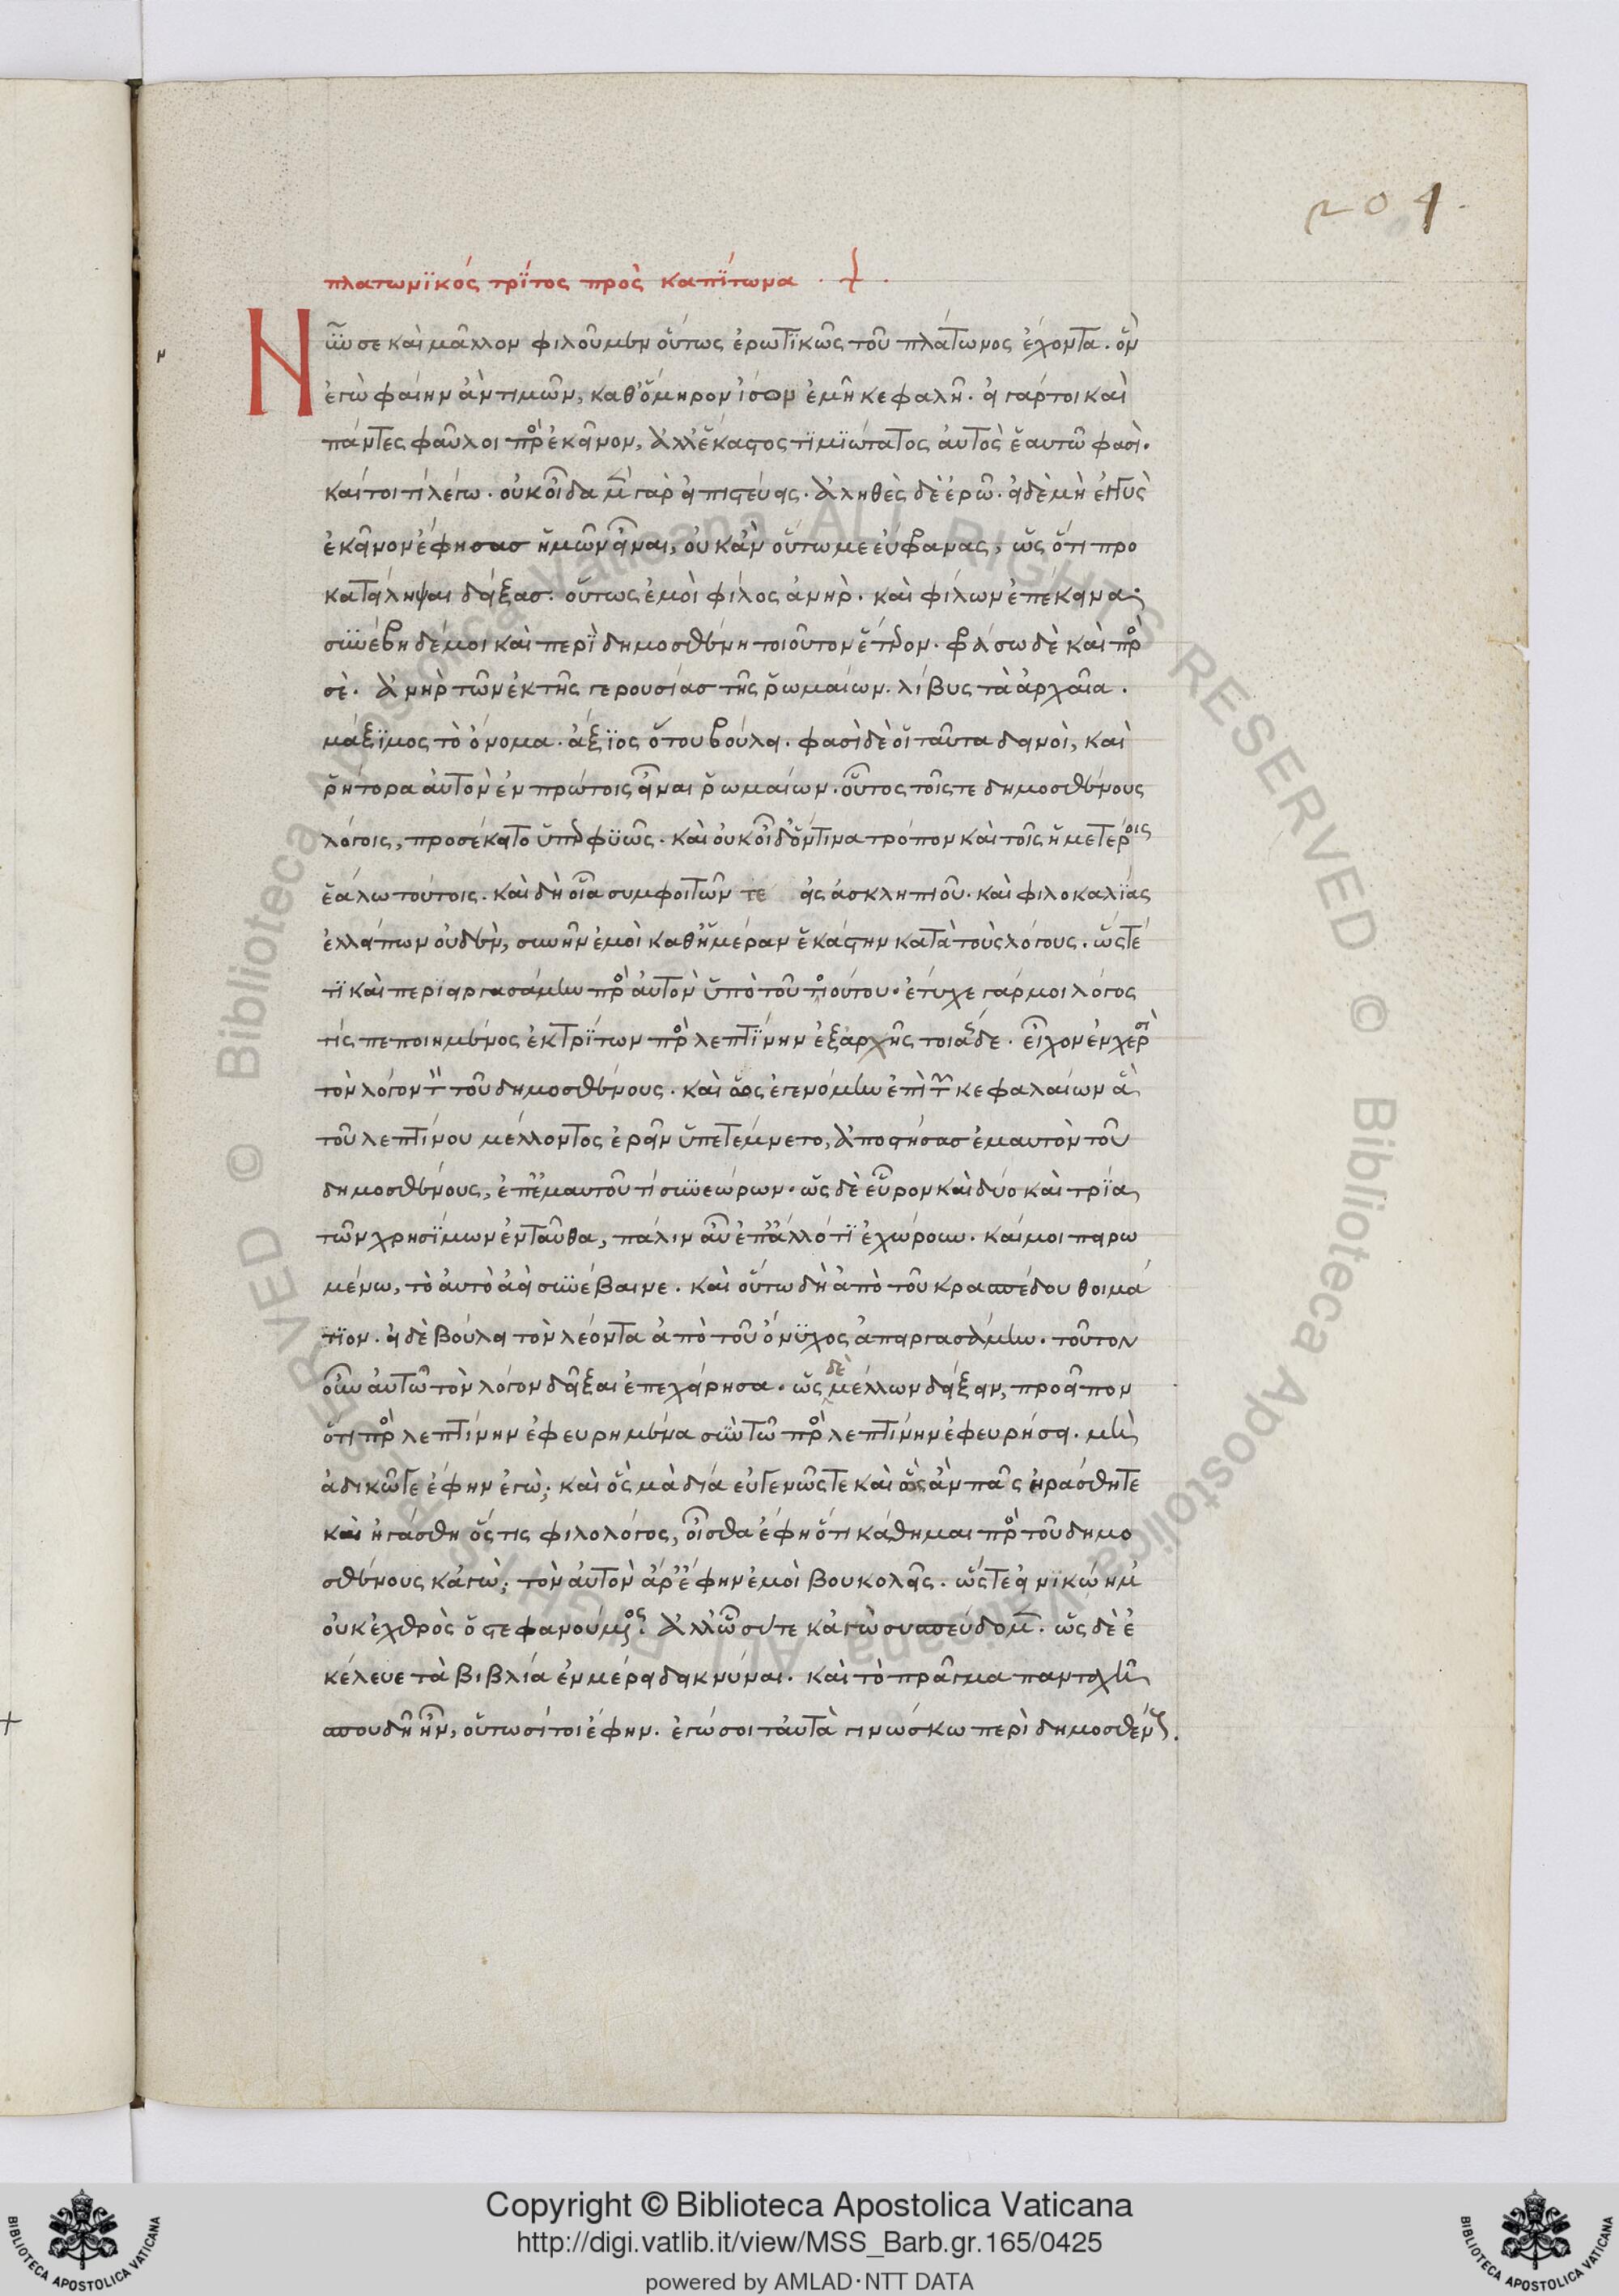 204.
πλατωνϊκός τρΐτος προς καπΐτωνα . + .
Νῦν σε καὶ μᾶλλον φιλοῦμεν οὕτως ἐρωτϊκῶς τοῦ πλάτωνος ἔχοντα. ὃν
ἐγὼ φαίην ἂν τιμῶν, καθ' ὅμηρον ἴσον ἐμῆ κεφαλῆ. εἰ γάρτοι καὶ
πάντες φαῦλοι πρὸς ἐκεῖνον, ἀλλ' ἕκαστος τϊμϊώτατος αὐτὸς ἑαυτῶ φασὶ.
καίτοι τί λέγω. οὐκ οἶδα μὲν γὰρ εἰ πιστεύεις. ἀληθὲς δὲ ἐρῶ. εἰ δὲ μὴ ἐγγὺς
ἐκεῖνον ἔφησασ ἡμῶν εἶναι, οὐκ ἂν οὕτω με εὔφρανας, ὡς ὅτι προ
καταλήψει δείξασ. οὕτως ἐμοὶ φίλος ἁνήρ. καὶ φίλων ἐπέκεινα·
συνέβη δέ μοι καὶ περὶ δημοσθένη τοιοῦτον ἕτερον. φράσω δὲ καὶ πρὸς
σέ. ἀνὴρ τῶν ἐκ τῆς γερουσίασ τῆς ῥωμαίων. λίβυς τὰ ἀρχαῖα.
μάξϊμος τὸ ὄνομα. ἄξϊος ὅτου βούλει. φασὶ δὲ οἱ ταῦτα δεινοὶ, καὶ
ῥήτορα αὐτὸν ἐν πρώτοις εἶναι ῥωμαίων. οὗτος τοῖς τε δημοσθένους
λόγοις, προσέκειτο ὑπερφϋῶς. καὶ οὐκ οἶδ' ὅντινα τρόπον καὶ τοῖς ἡμετέροις
ἑάλω τούτοις. καὶ δὴ οἷα συμφοιτῶν τε εἰς ἀσκληπιοῦ. καὶ φιλοκαλΐας
ἐλλείπων οὐδὲν, συνῆν ἐμοὶ καθ' ἡμέραν ἑκάστην κατὰ τοὺς λόγους. ὥς τέ
τϊ καὶ περϊειργασάμην πρὸς αὐτὸν ὑπὸ τοῦ τοιούτου. ἔτυχε γάρ μοι λόγος
τίς πεποιημένος ἐκ τρΐτων πρὸς λεπτΐνην ἐξ ἀρχῆς τοιᾶσδε. εἶχον ἐν χεροὶ
τὸν λόγον τοῦ δημοσθένους. καὶ ὡς ἐγενόμην ἐπὶ τῶν κεφαλαίων ἃ
τοῦ λεπτίνου μέλλοντος ἐρεῖν ὑπετέμνετο, ἀποστήσασ ἐμαυτὸν τοῦ
δημοσθένους, ἐπ' ἐμαυτοῦ τί συνεώρων. ὡς δὲ εὗρον καὶ δύο καὶ τρΐα
τῶν χρησΐμων ἐνταῦθα, πάλιν αὖ ἐπ' ἄλλό τϊ ἐχώρουν. καί μοι πειρω
μένω, τὸ αὐτὸ ἀεὶ συνέβαινε. καὶ οὕτω δὴ ἀπὸ τοῦ κρασπέδου θοιμά
τϊον. εἰ δὲ βούλει τὸν λέοντα ἀπὸ τοῦ ὄνϋχος ἀπειργασάμην. τοῦτον
οὖν αὐτῶ τὸν λόγον δεῖξαι ἐπεχείρησα. ὡς δὲ μέλλων δείξειν, προεῖπον
ὅτι πρὸς λεπτίνην ἐφευρημένα σὺν τῶ πρὸς λεπτίνην ἐφευρήσει. μὴ
ἀδικῶγε ἔφην ἐγώ; καὶ ὃς μὰ δία εὐγενῶς τε καὶ ὡς ἂν παῖς ἠράσθητε
καὶ ἠγάσθη ὅς τις φιλολόγος, οἶσθα ἔφη ὅτι κάθημαι πρὸς τοῦ δημο
σθένους κἀγώ; τὸν αὐτὸν ἄρ' ἔφην ἐμοὶ βουκολεῖς. ὥς τε εἰ νϊκώην
οὐκ ἐχθρὸς ὁ στεφανούμενος. ἀλλ' ὧ σύ τε κἀγὼ συσπεύδομεν. ὡς δὲ ἐ
κέλευε τὰ βιβλία ἐν μέρει δεικνύναι. καὶ τὸ πρᾶγμα πανταχῆ
σπουδὴ ἦν, οὕτωσί τοι ἔφην. ἐγώ σοι ταὐτὰ γινώσκω περὶ δημοσθένους.